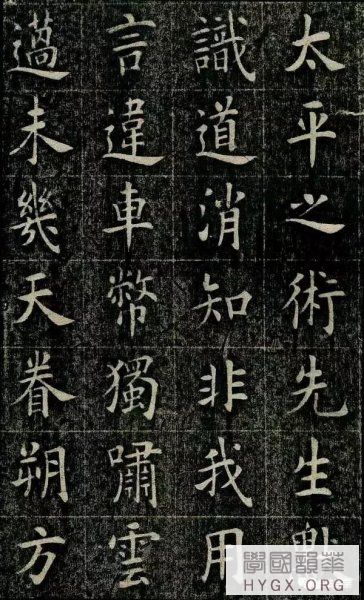 太平之術先生默
識道消知非我用
言違車幣獨嘯雲
邁未幾天眷朔方
華韻國學
HYGX.ORG